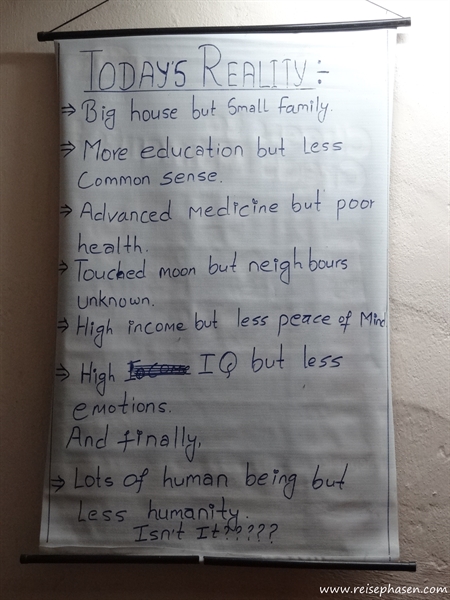 TODAY'S REALITY :-
⇒ Big house but Small family.
⇒ More education but Less
Common sense.
⇒ Advanced medicine but poor
health.
⇒ Touched moon but neighbours
unknown.
⇒ High income but less peace of Mind
⇒ High IQ but less
emotions.
And finally,
⇒ Lots of human being but
Less humanity.
Isn't It?????
www.reisephasen.com